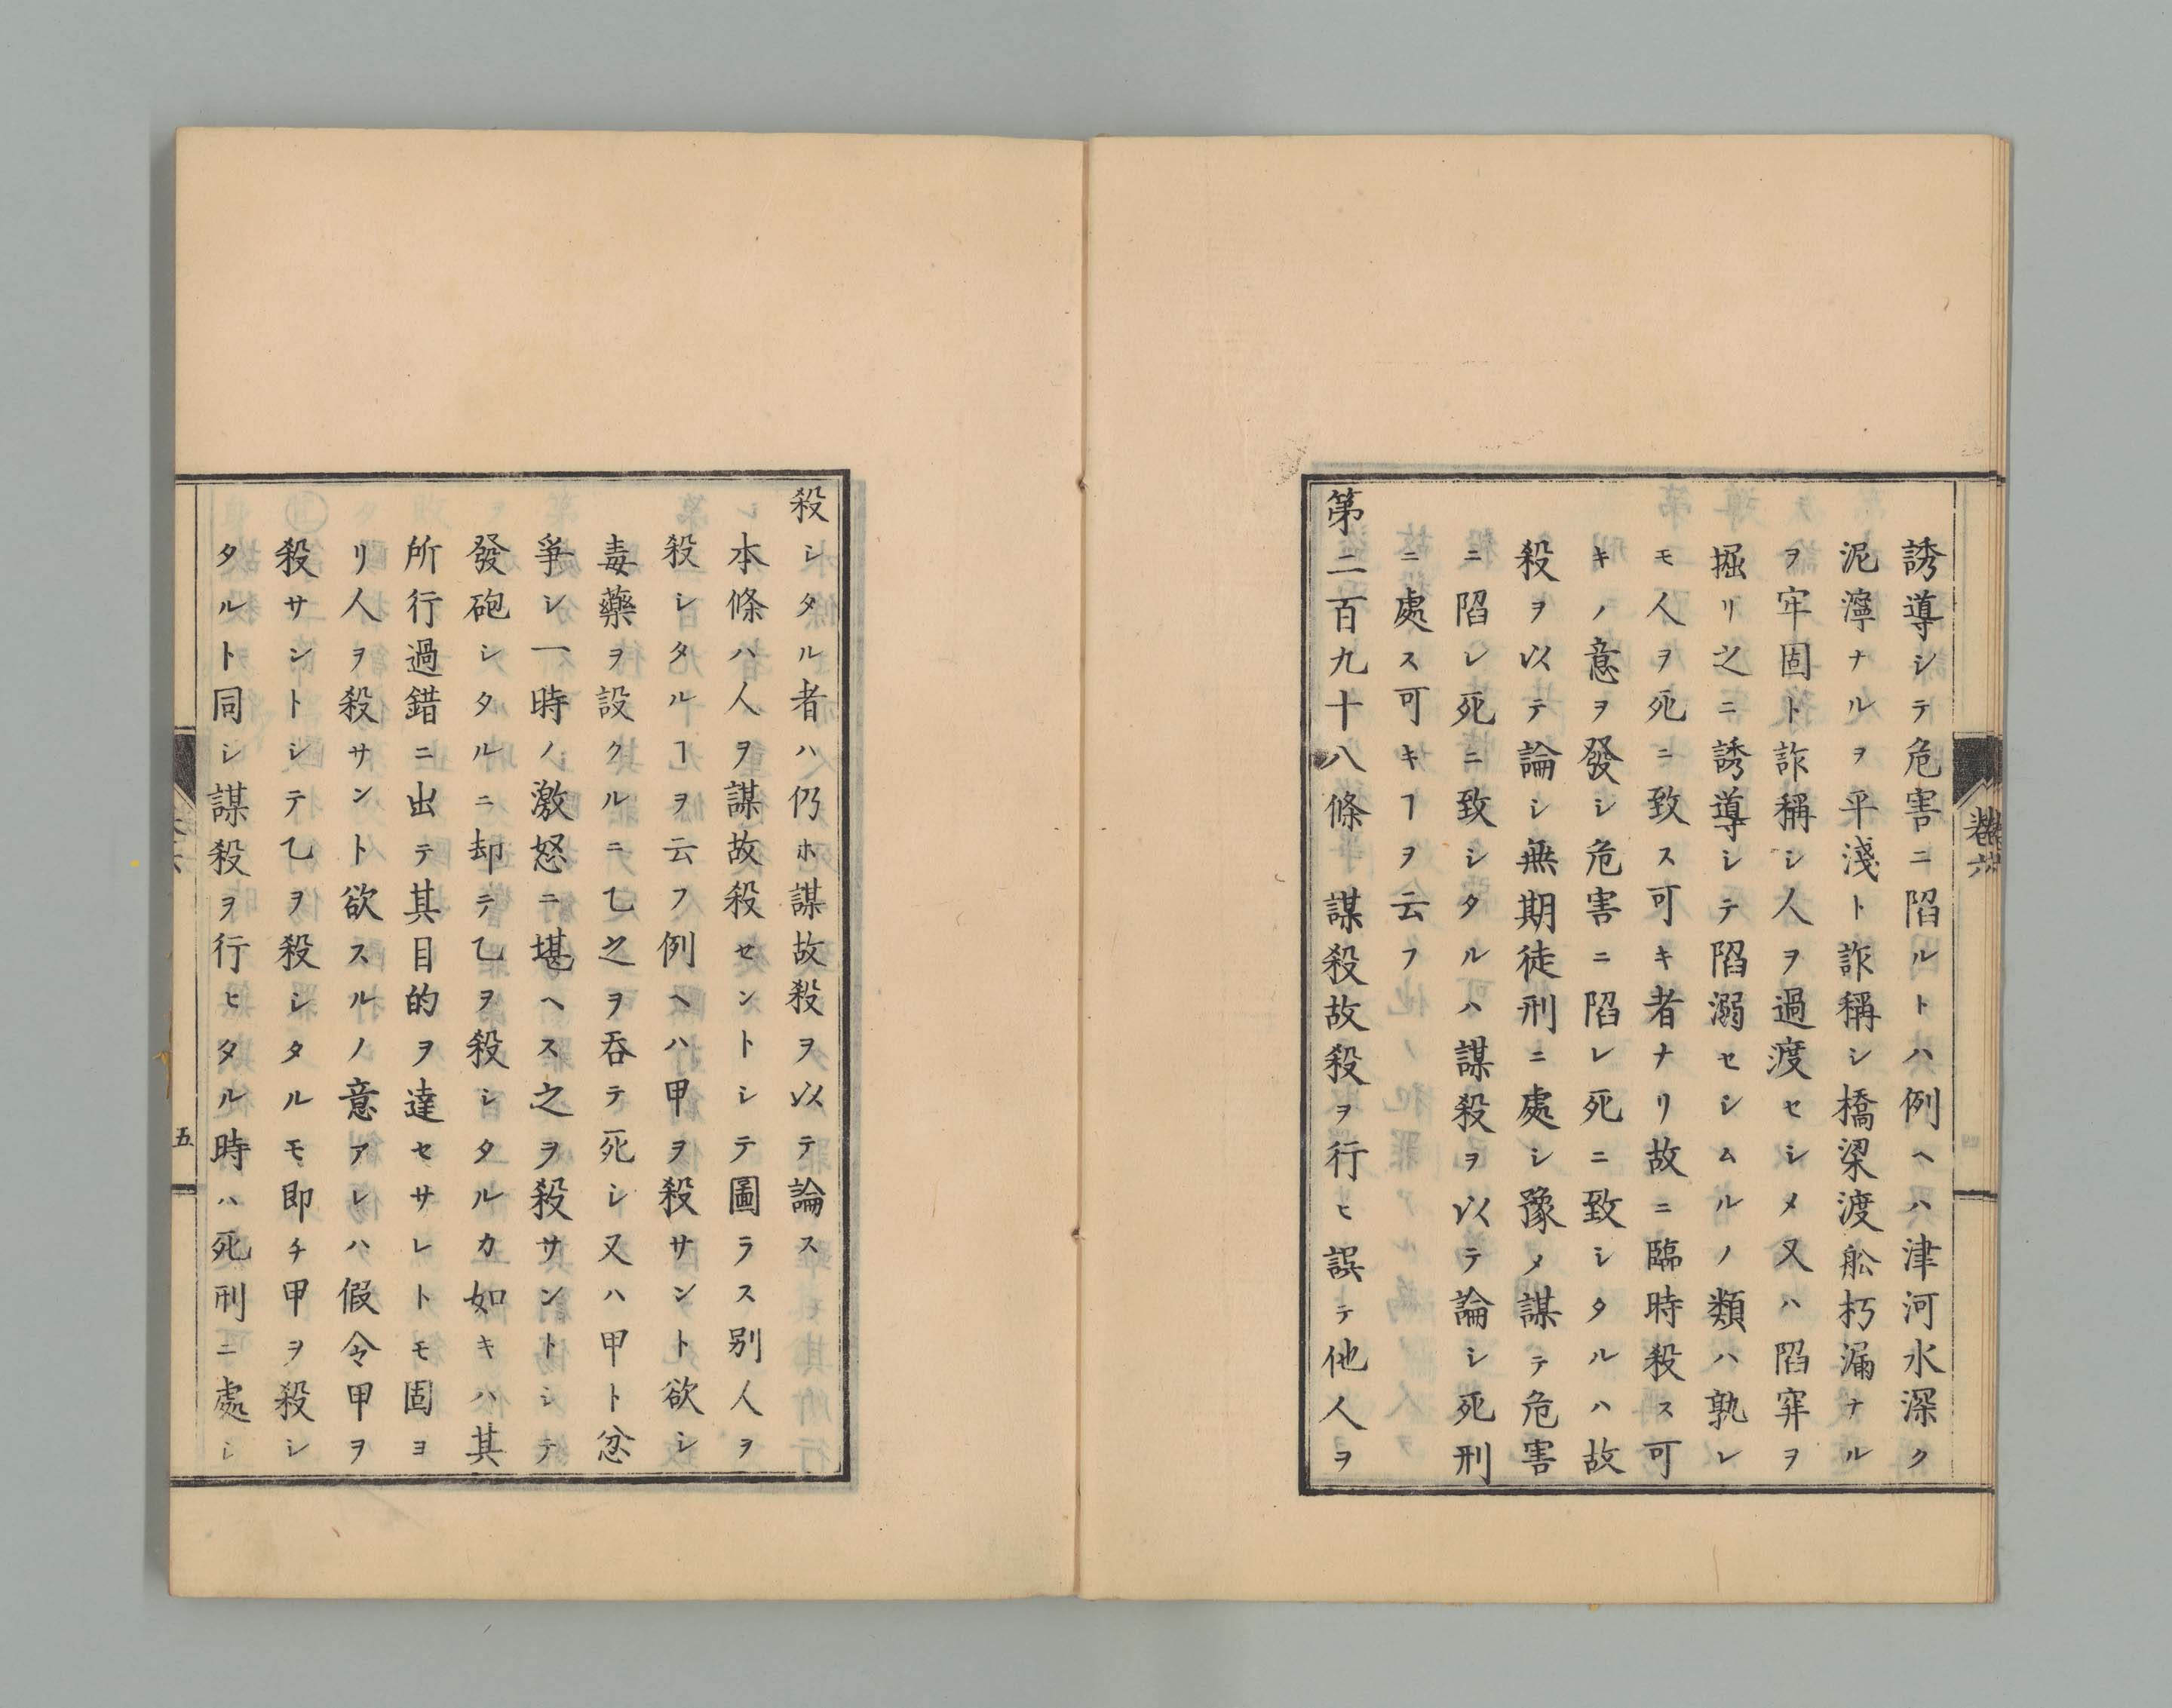 誘導シテ危害ニ陷ルトハ例ヘハ津河水深ク
泥濘ナルヲ平淺ト詐稱シ橋梁渡舩朽漏ナル
ヲ牢固ト詐稱シ人ヲ過渡セシメ又ハ陷穽ヲ
掘リ之ニ誘導シテ陷溺セシムルノ類ハ孰レ
モ人ヲ死ニ致ス可キ者ナリ故ニ臨時殺ス可
キノ意ヲ發シ危害ニ陷レ死ニ致シタルハ故
殺ヲ以テ論シ無期徒刑ニ處シ豫メ謀テ危害
ニ陷レ死ニ致シタルハ謀殺ヲ以テ論シ死刑
ニ處ス可キヿヲ云フ
第二百九十八條 謀殺故殺ヲ行ヒ誤テ他人ヲ
卷六
殺シタル者ハ仍ホ謀故殺ヲ以テ論ス
本條ハ人ヲ謀故殺セントシテ圖ラス別人ヲ
殺シタルヿヲ云フ例ヘハ甲ヲ殺サント欲シ
毒藥ヲ設クルニ乙之ヲ呑テ死シ又ハ甲ト忿
爭シ一時ノ激怒ニ堪ヘス之ヲ殺サントシテ
發砲シタルニ却テ乙ヲ殺シタルカ如キハ其
所行過錯ニ出テ其目的ヲ達セサレトモ固ヨ
リ人ヲ殺サント欲スルノ意アレハ假令甲ヲ
殺サントシテ乙ヲ殺シタルモ即チ甲ヲ殺シ
タルト同シ謀殺ヲ行ヒタル時ハ死刑ニ處シ
五